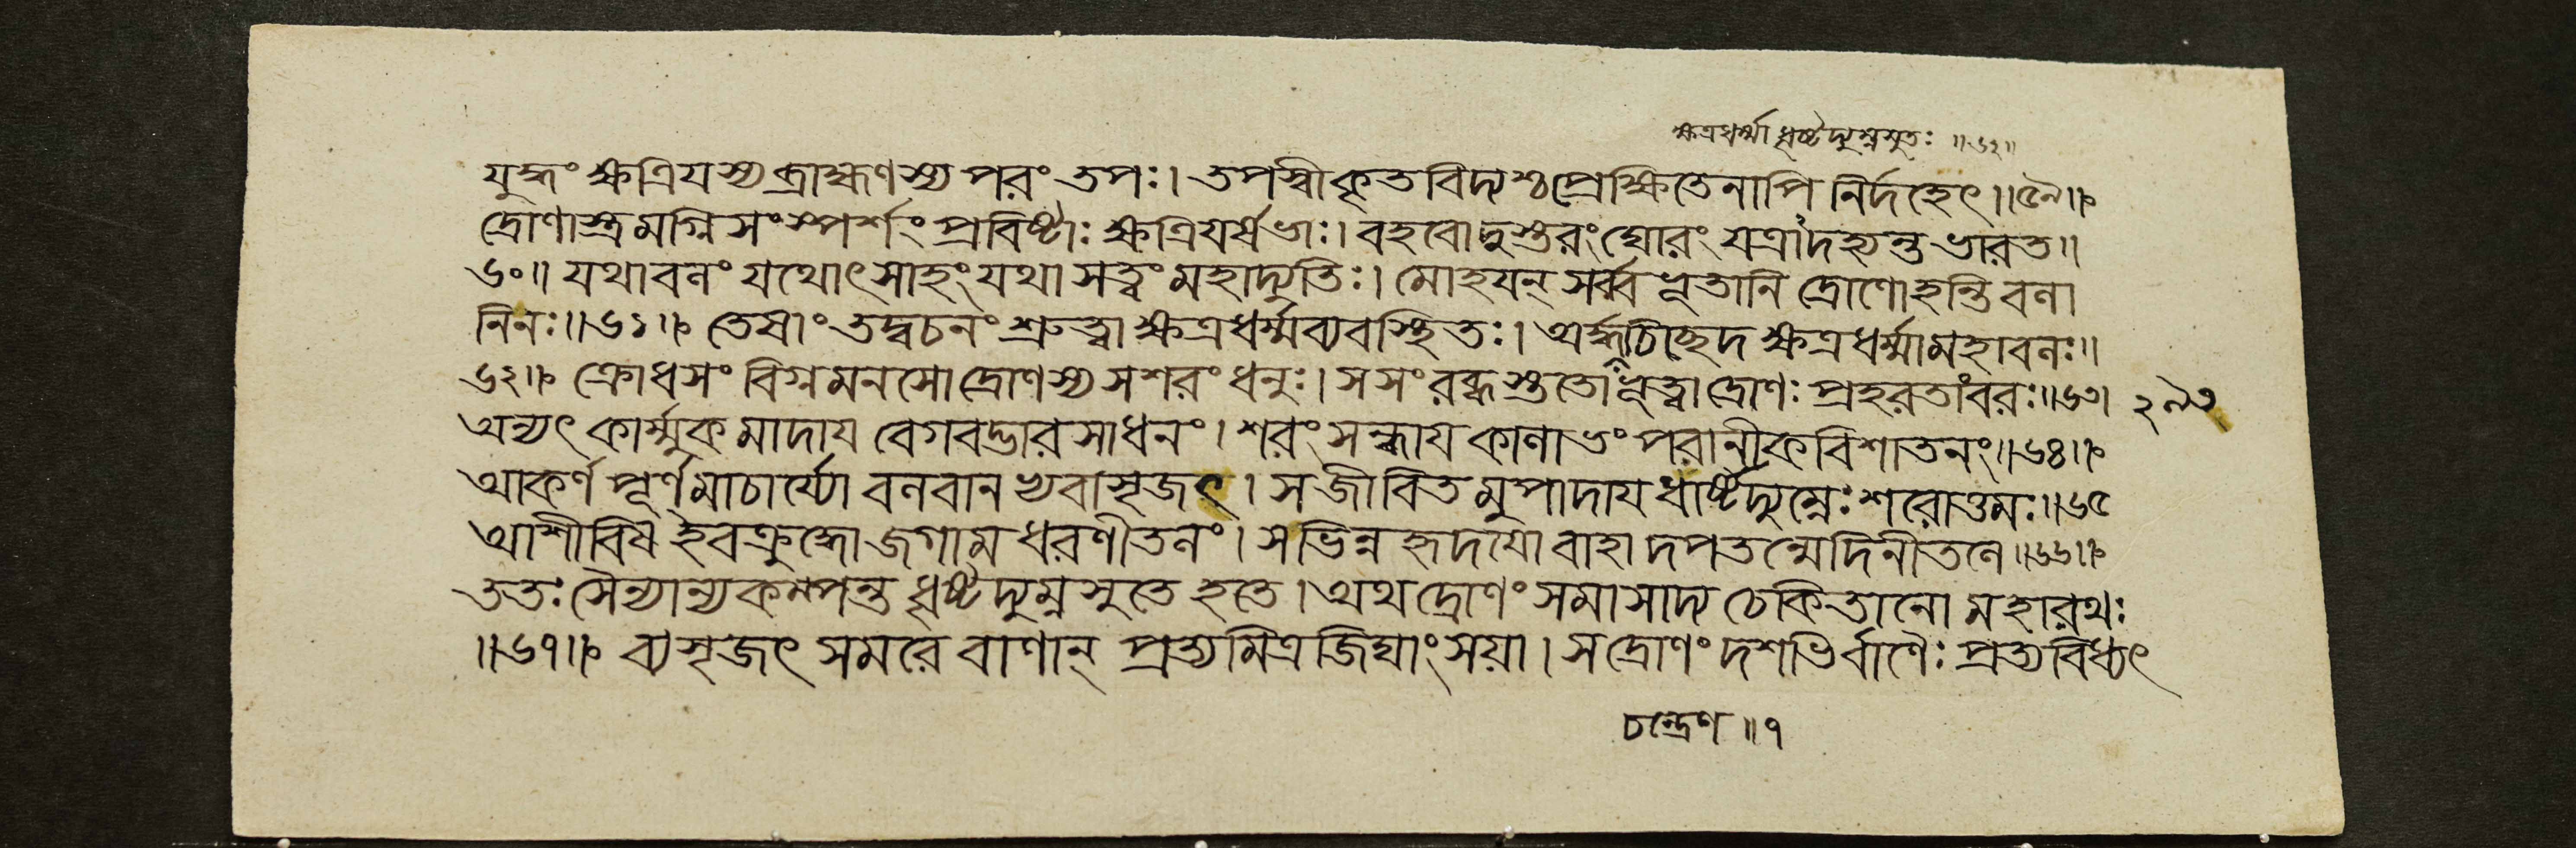 ক্ষত্রধর্ম্মা ধৃষ্টদ্যুম্নসুতঃ ॥৬২॥
যুদ্ধং ক্ষত্রিযস্য ব্রাহ্মণস্য পরং তপঃ। তপস্বী কৃতবিদ্যশ্চ প্রেক্ষিতেনাপি নির্দহেৎ॥৫৯॥
দ্রোণাস্ত্রমগ্নিসংস্পর্শং প্রবিষ্টাঃ ক্ষত্রিযর্ষভাঃ। বহবো দুস্তরং ঘোরং যত্রাদহ্যন্ত ভারত॥
৬০॥ যথাবলং যথোৎসাহং যথাসত্ত্বং মহাদ্যুতিঃ। মোহযন্ সর্ব্বভূতানি দ্রোণো হন্তি বলা
নিনঃ॥৬১॥ তেষাং তদ্বচনং শ্রুত্বা ক্ষত্রধর্ম্মব্যবস্থিতঃ। অর্দ্ধচিচ্ছেদ ক্ষত্রধর্ম্মা মহাবলঃ॥
৬২॥ ক্রোধসংবিগ্নমনসো দ্রোণস্য সশরং ধনুঃ। স সংরব্ধস্ততো ভূত্বা দ্রোণঃ প্রহরতাংবরঃ॥৬৩। ২৯৩
অন্যৎ কার্ম্মুকমাদায বেগবদ্ভারসাধনং। শরং সন্ধায কালাভং পরানীকবিশাতনং॥৬৪॥
আকর্ণপূর্ণমাচার্য্যো বলবানভ্যবাসৃজৎ। স জীবিতমুপাদায ধার্ষ্টদ্যুম্নেঃ শরোত্তমঃ॥৬৫
আশীবিষ ইব ক্রুদ্ধো জগাম ধরণীতলং। স ভিন্নহৃদযো বাহাদপতন্মেদিনীতলে॥৬৬॥
ততঃ সৈন্যান্যকম্পন্ত ধৃষ্টদ্যুম্নসুতে হতে। অথ দ্রোণং সমাসাদ্য চেকিতানো মহারথঃ
॥৬৭॥ ব্যসৃজৎ সমরে বাণান্ প্রত্যমিত্রজিঘাংসয়া। স দ্রোণং দশভির্বাণৈঃ প্রত্যবিধ্যৎ
চন্দ্রেণ॥৭